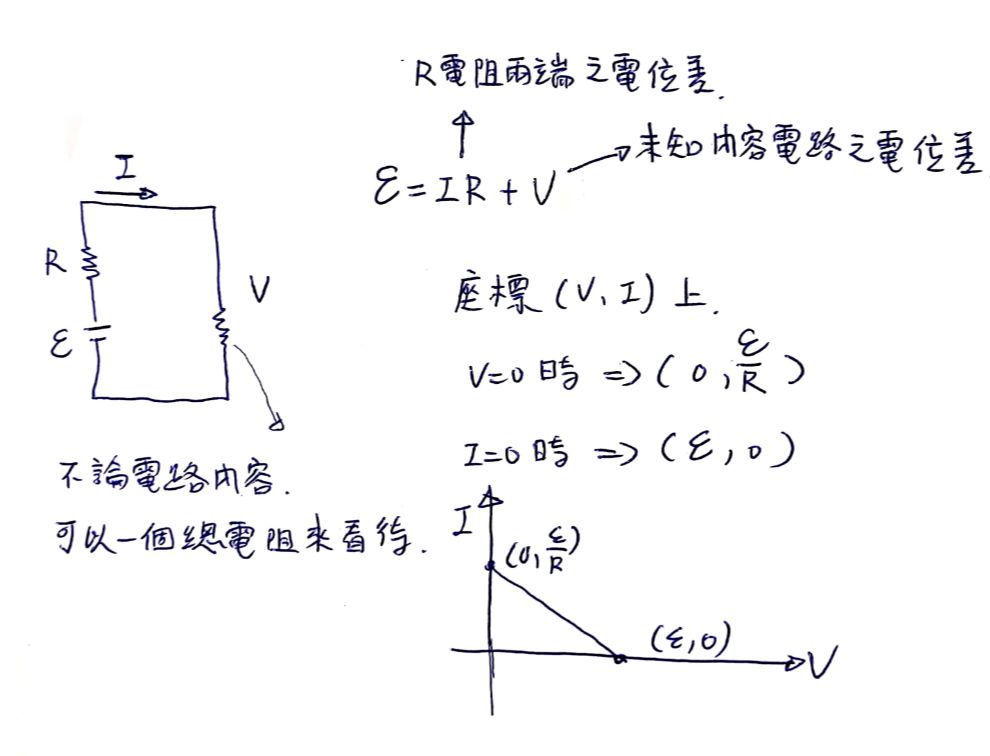 R電阻兩端之電位差.
→未知內容電路之電位差
ε=IR+V
I
R
ε
V
座標(V、I)上.
V=0時 => (0,ε/R)
I=0時 => (ε,0)
不論電路內容.
可以一個總電阻來看待.
I
(0,ε/R)
(ε,0)
V